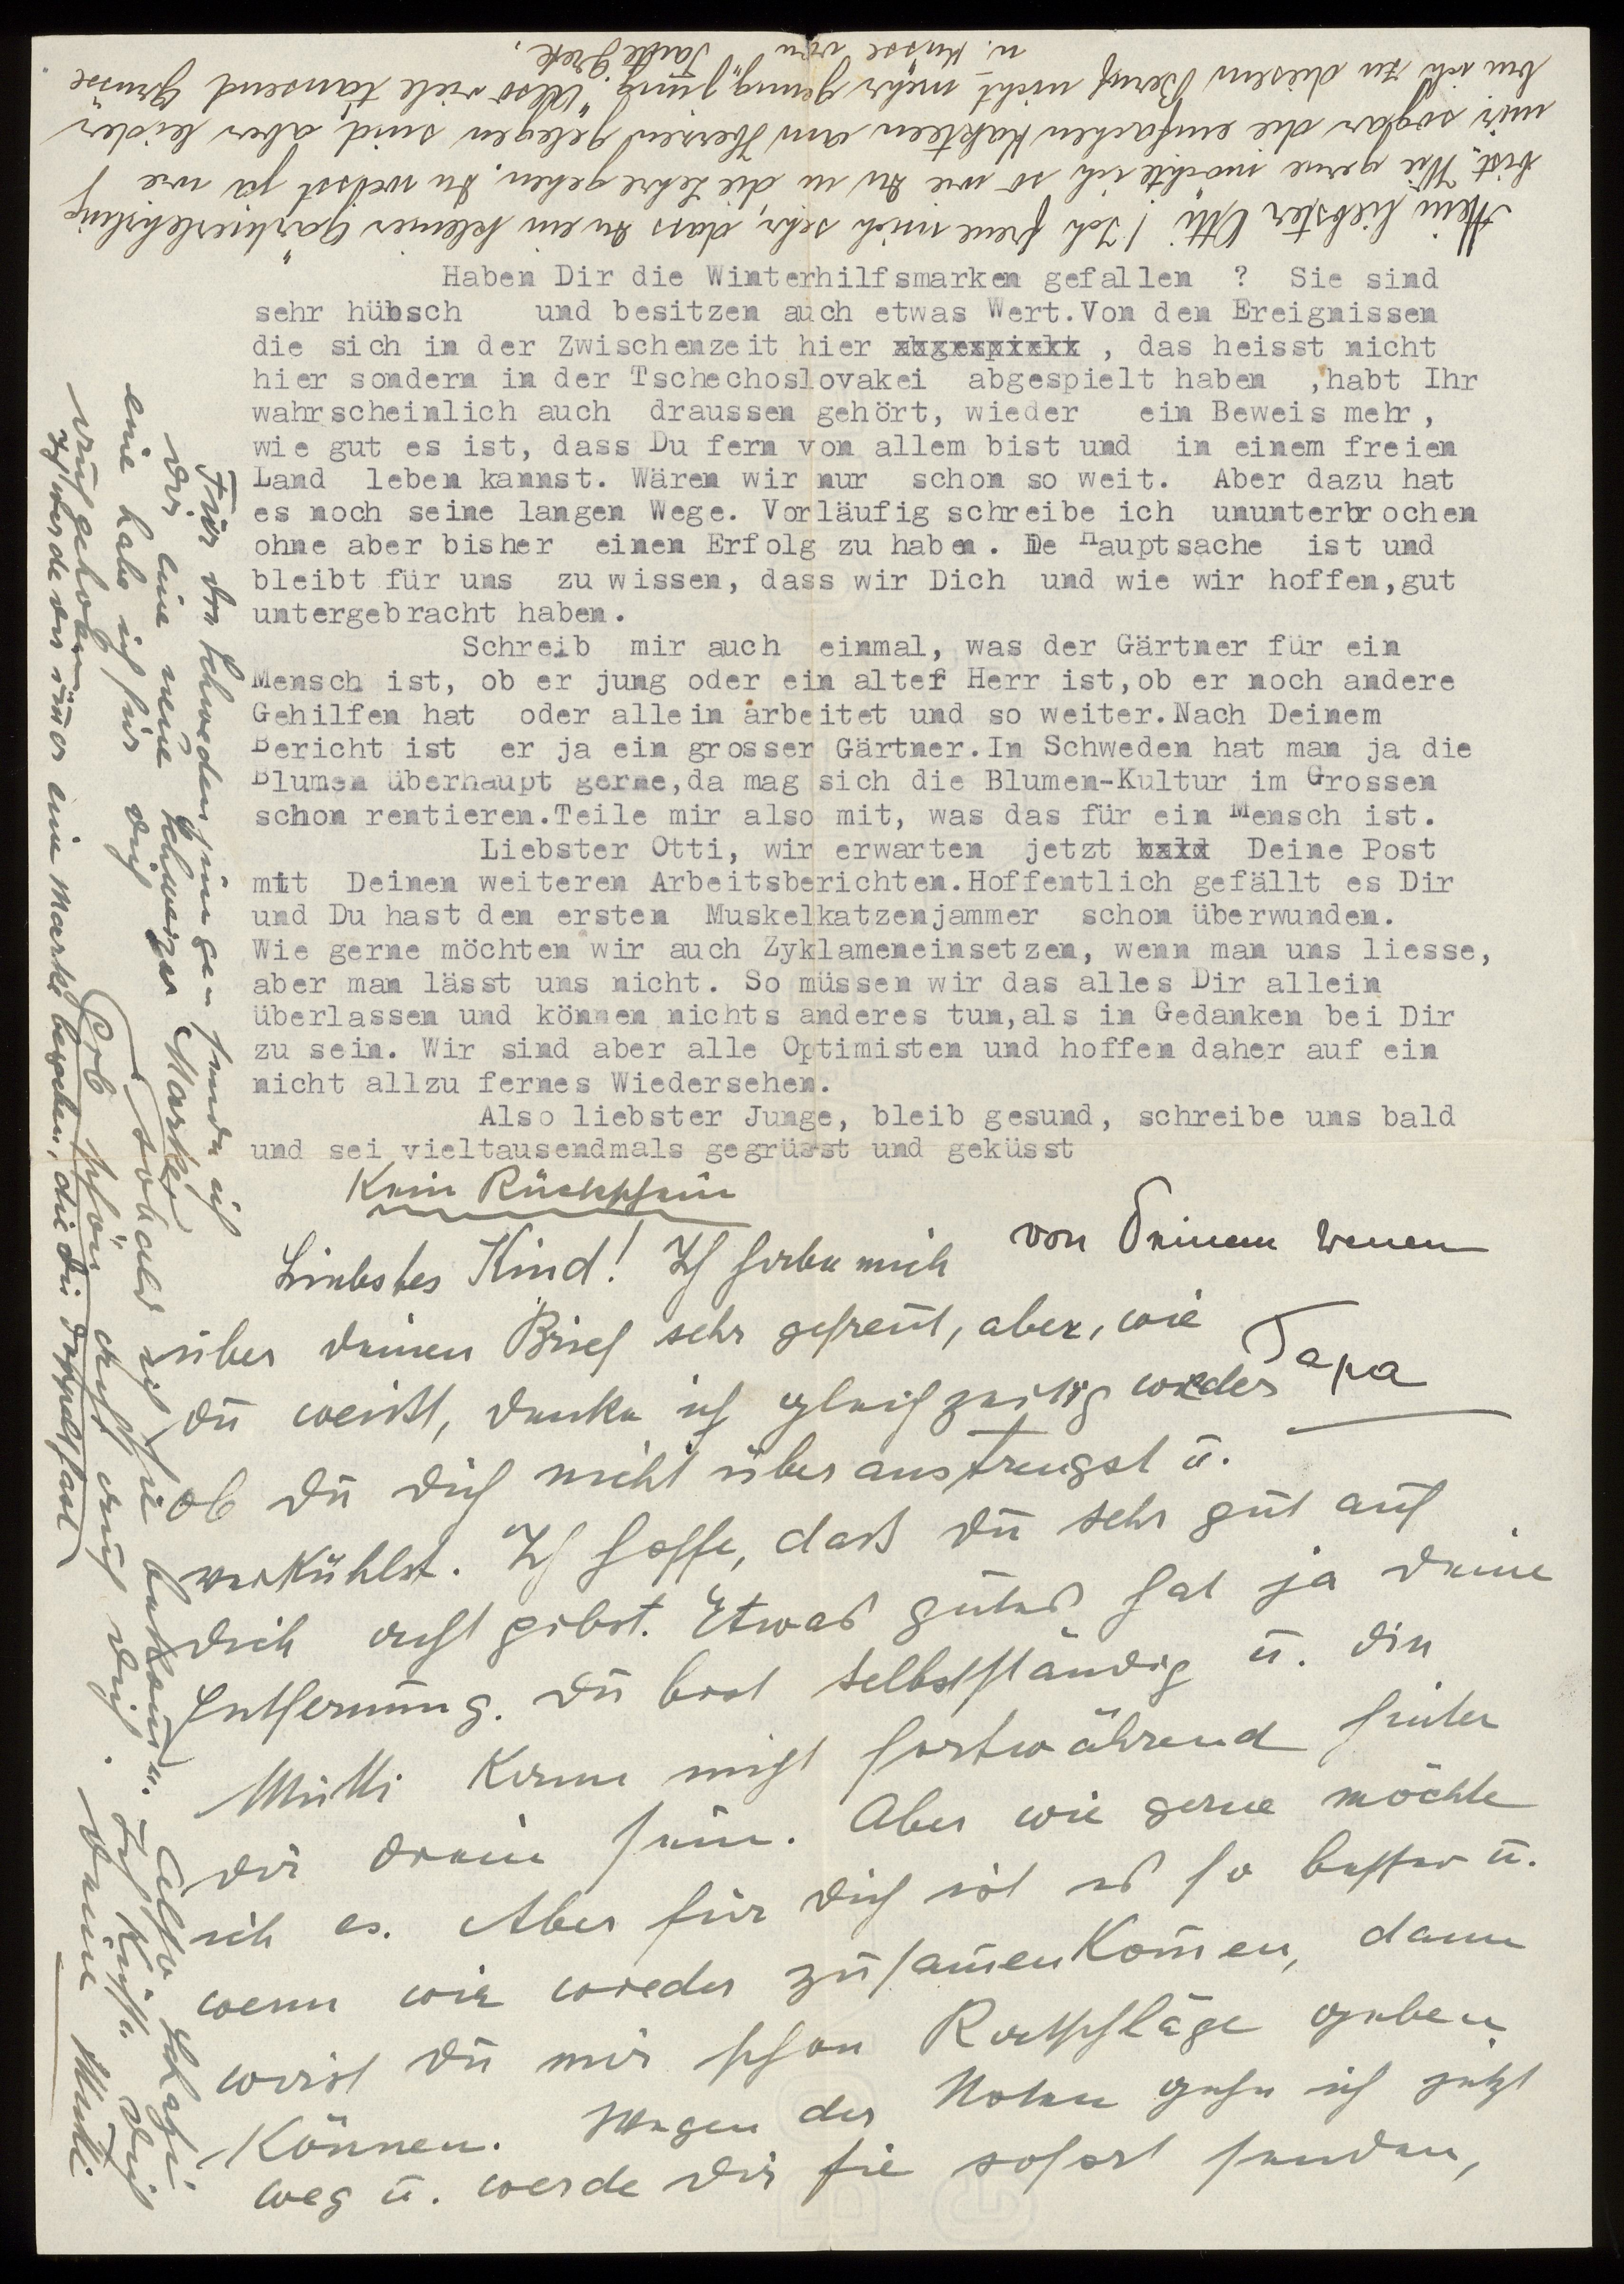 Haben Dir die Winterhilfsmarken gefallen ? Sie sind
sehr hübsch und besitzen auch etwas Wert.Von den Ereignissen
die sich in der Zwischenzeit hier abgespielt , das heisst nicht
hier sondern in der Tschechoslovakei abgespielt haben ,habt Ihr
wahrscheinlich auch draussen gehört, wieder ein Beweis mehr,
wie gut es ist, dass Du fern von allem bist und in einem freien
Land leben kannst. Wären wir nur schon so weit. Aber dazu hat
es noch seine langen Wege. Vorläufig schreibe ich ununterbrochen
ohne aber bisher einen Erfolg zu haben. De Hauptsache ist und
bleibt für uns zu wissen, dass wir Dich und wie wir hoffen,gut
untergebracht haben.
Schreib mir auch einmal, was der Gärtner für ein
Mensch ist, ob er jung oder ein alter Herr ist,ob er noch andere
Gehilfen hat oder allein arbeitet und so weiter.Nach Deinem
Bericht ist er ja ein grosser Gärtner.In Schweden hat man ja die
Blumen überhaupt gerne,da mag sich die Blumen-Kultur im Grossen
schon rentieren.Teile mir also mit, was das für ein Mensch ist.
Liebster Otti, wir erwarten jetzt bald Deine Post
mit Deinen weiteren Arbeitsberichten.Hoffentlich gefällt es Dir
und Du hast den ersten Muskelkatzenjammer schon überwunden.
Wie gerne möchten wir auch Zyklameneinsetzen, wenn man uns liesse,
aber man lässt uns nicht. So müssen wir das alles Dir allein
überlassen und können nichts anderes tun,als in Gedanken bei Dir
zu sein. Wir sind aber alle Optimisten und hoffen daher auf ein
nicht allzu fernes Wiedersehen.
Also liebster Junge, bleib gesund, schreibe uns bald
und sei vieltausendmals gegrüsst und geküsst
von Deinem
Papa
Kein Rückschein
Liebstes Kind! Ich habe mich
über deinen Brief sehr gefreut, aber, wie
du weißt, denke ich gleichzeitig wieder
ob du dich nicht überanstrengst u.
verkühlst. Ich hoffe, daß du sehr gut auf
dich acht gibst. Etwas gutes hat ja deine
Entfernung. Du bist selbstständig u. die
Mutti kann nicht fortwährend hinter
dir drein sein. Aber wie gerne möchte
ich es. Aber für dich ist es so besser u.
wenn wir wieder zusam̄enkom̄en, dann
wirst du mir schon Ratschläge geben
können. Wegen der Noten gehe ich jetzt
weg u. werde dir sie sofort senden,
sobald ich sie bekom̄e. Also Schatzi
Gib schön acht auf dich. Ich küsse dich
Deine Mutti.
Für den Schwedenjungen sende ich
dir eine neue Schweizer Marke
eine habe ich für dich
aufgehoben
Ich werde dir im̄er eine Marke bezeichen, die du doppelt hast
Mein liebster Otti! Ich freue mich sehr, dass du ein kleiner Gärtnerlehrling
bist. Wie gerne möchte ich so wie du in die Lehre gehen. Du weisst ja wie
mir sogar die einfachen Kakteen am Herzen gelegen sind, aber leider
bin ich zu diesem Beruf nicht mehr genug "jung". Also viele tausend Grüsse
u. Küsse von Tante Grete.